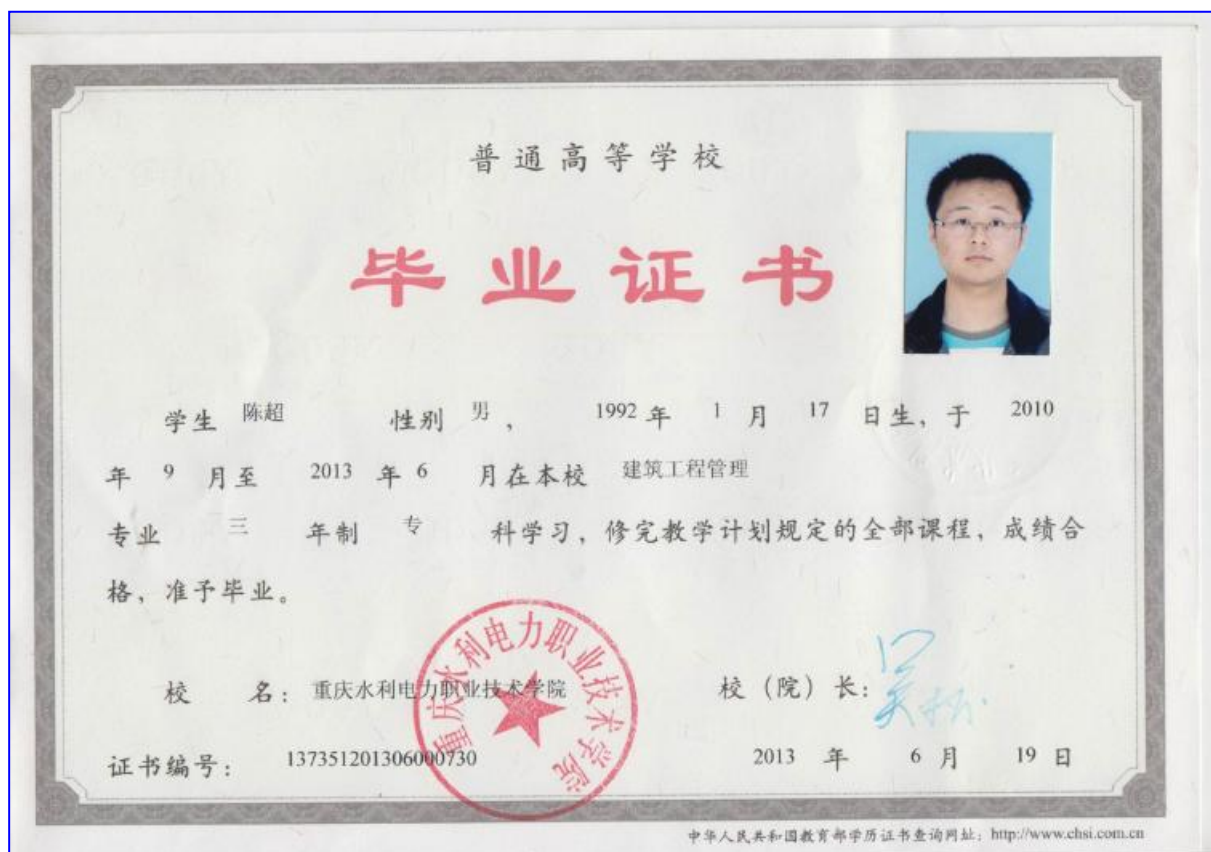 普通高等学校
毕业证书
学生 陈超 性别 男 , 1992 年 1 月 17 日生, 于 2010
年 9 月至 2013 年 6 月在本校 建筑工程管理
专业 三 年制 专 科学习, 修完教学计划规定的全部课程, 成绩合
格, 准予毕业。
校 名: 重庆水利电力职业技术学院 校 (院) 长:
重庆水利电力职业技术学院
证书编号: 137351201306000730 2013 年 6 月 19 日
中华人民共和国教育部学历证书查询网址: http://www.chsi.com.cn